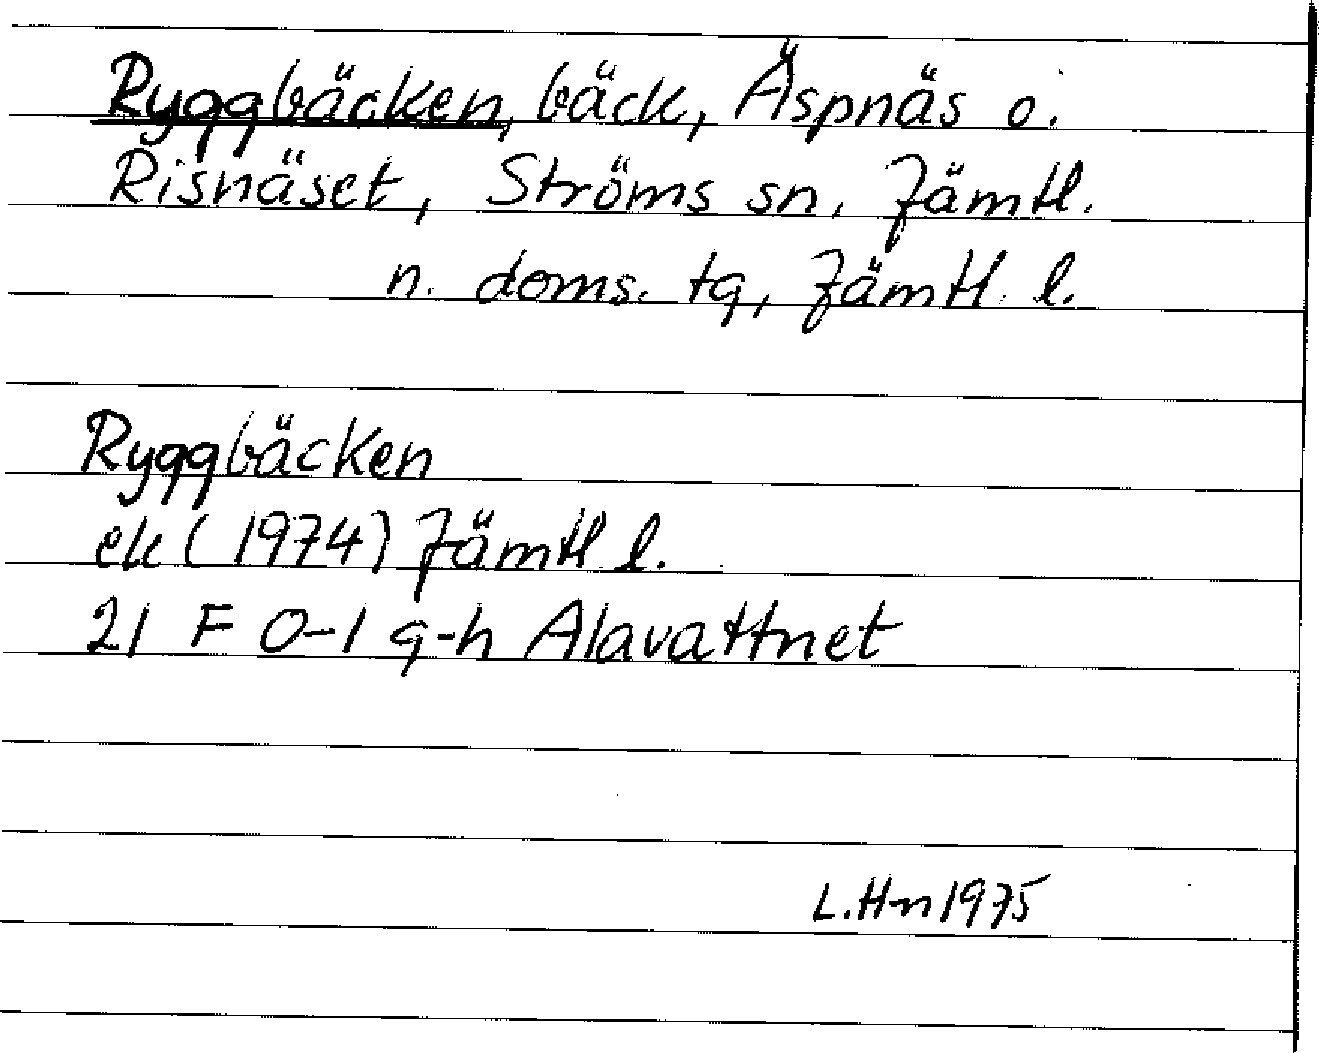 Ryggbäcken, bäck, Äspnäs o.
Risnäset, Ströms sn, Jämtl.
n. doms. tg, Jämtl. l.
Ryggbäcken
ek (1974) Jämtl l.
21 F 0-1 g-h Alavattnet
L.Hn 1975